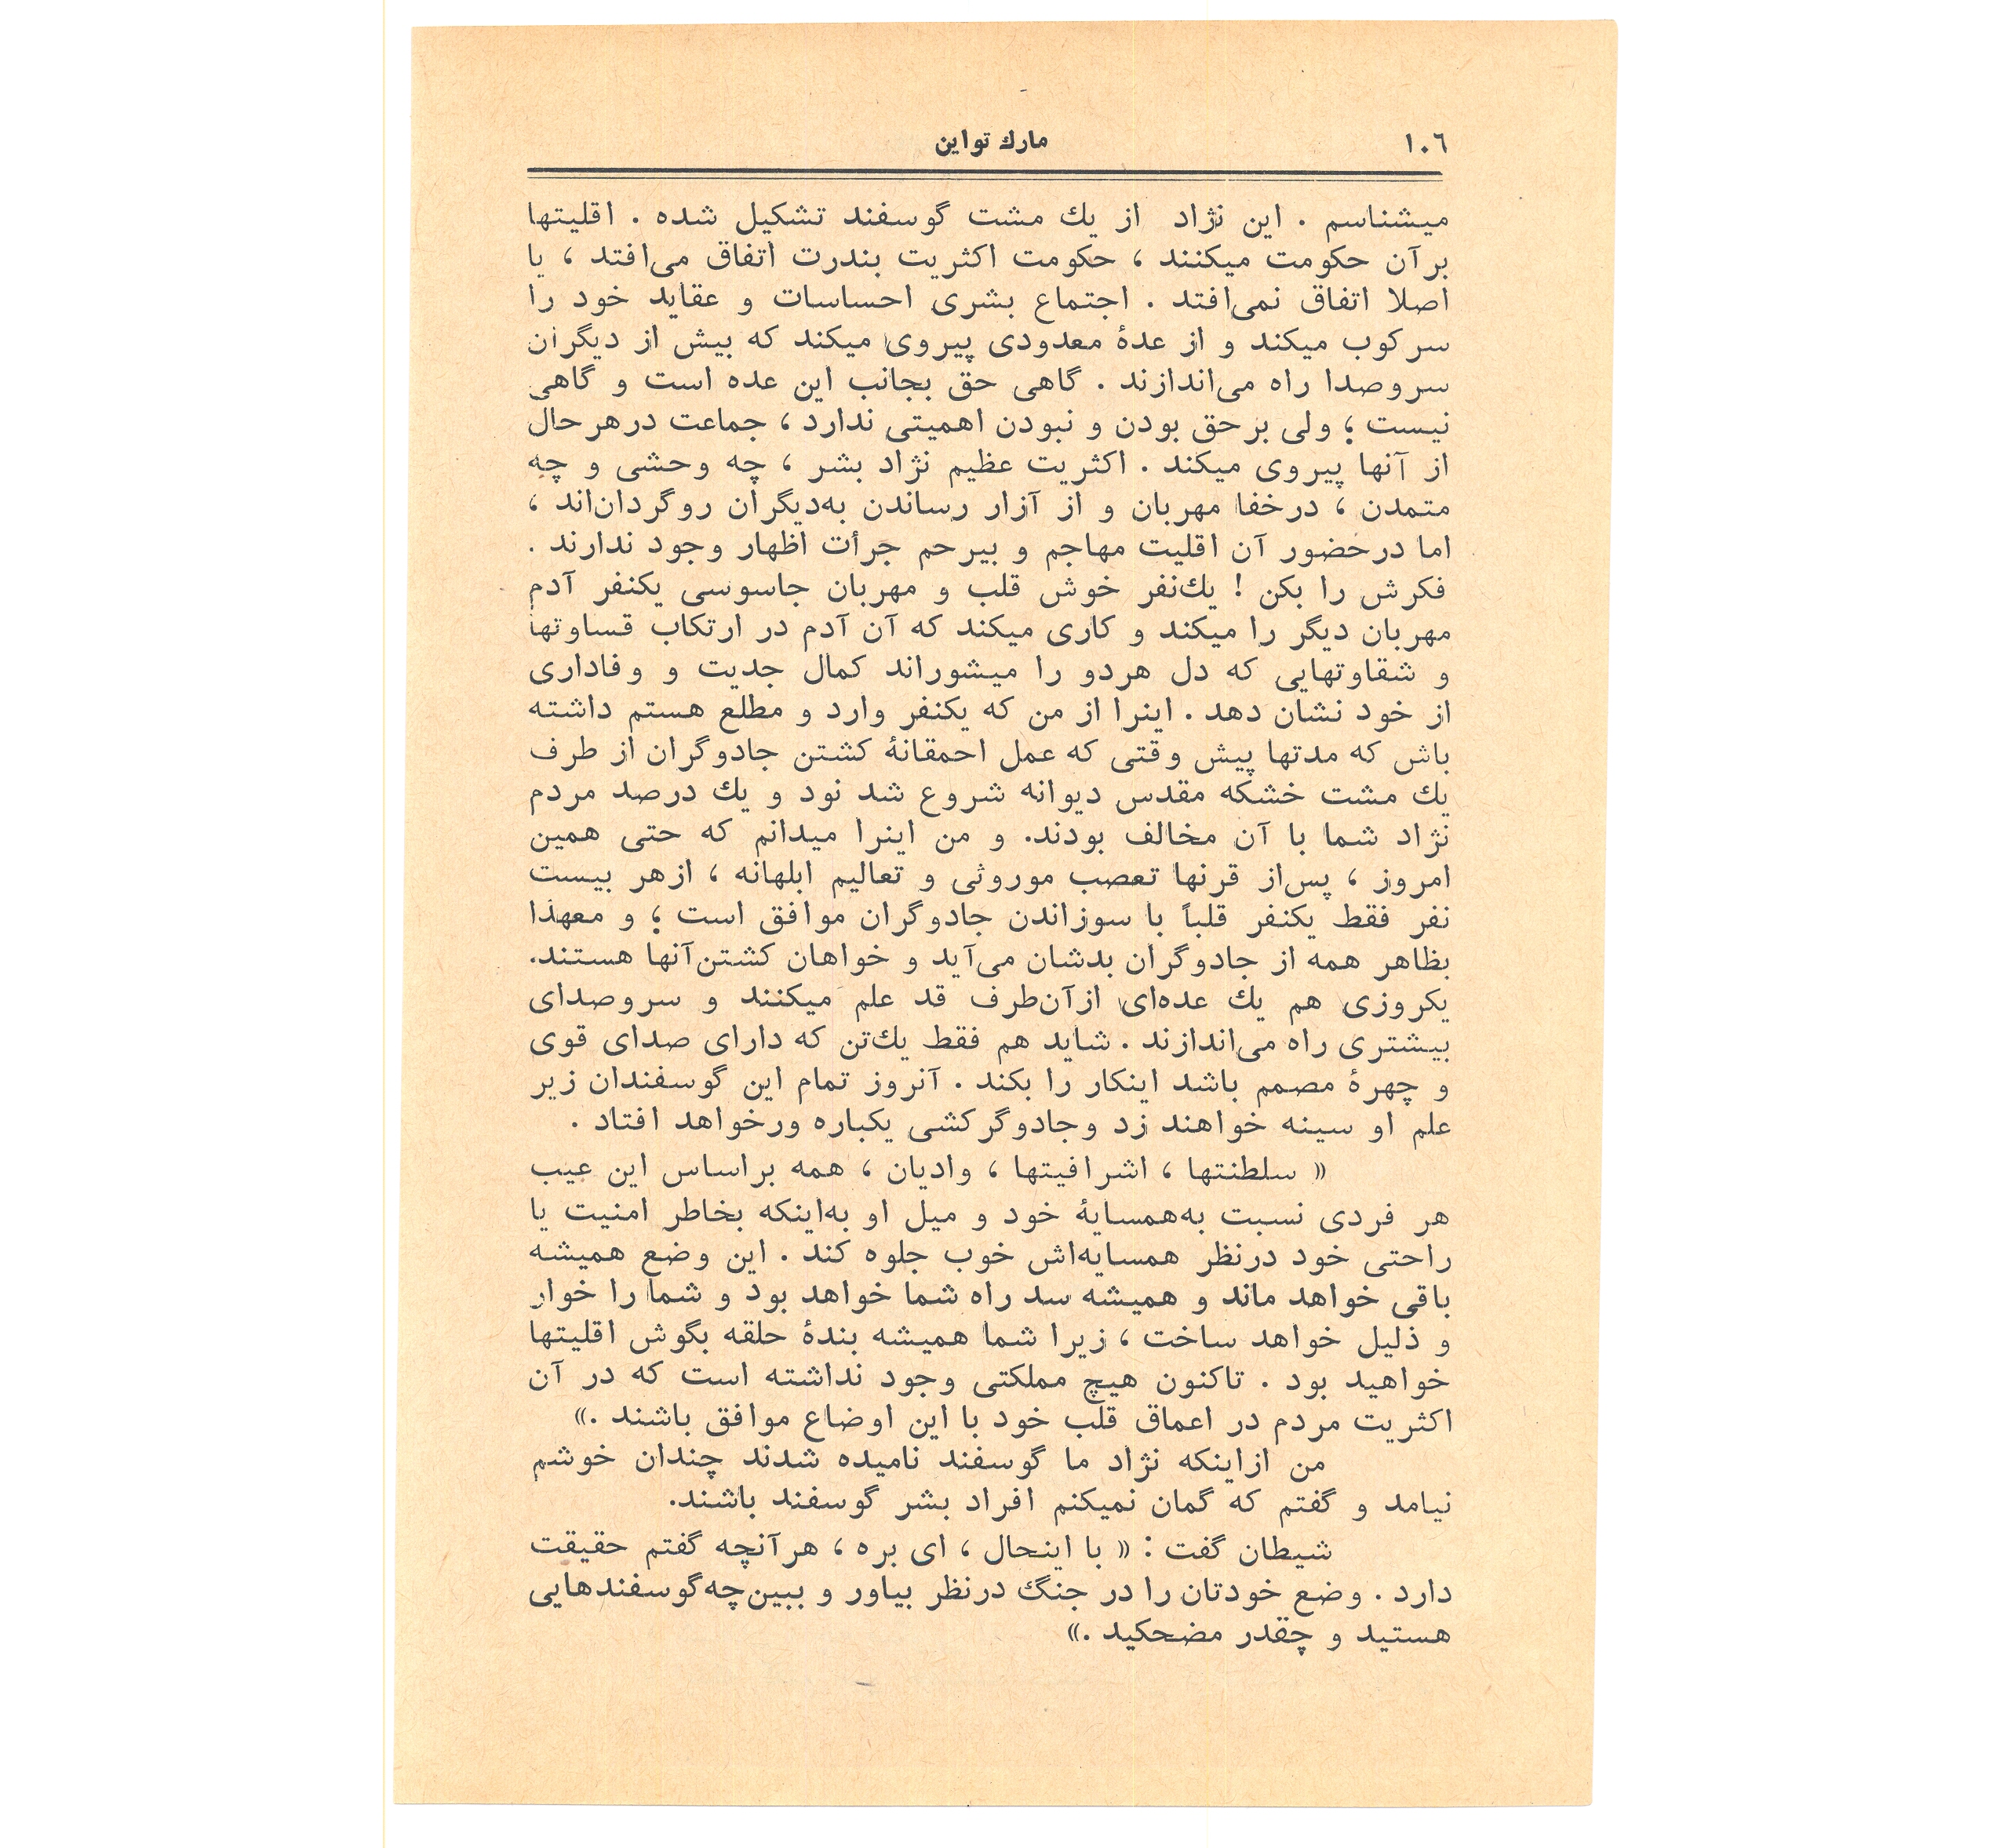 ۱۰۶
مارك تواین
میشناسم . این نژاد از یك مشت گوسفند تشکیل شده . اقلیتها
برآن حکومت میکنند ، حکومت اکثریت بندرت اتفاق می‌افتد ، یا
اصلا اتفاق نمی‌افتد . اجتماع بشری احساسات و عقاید خود را
سرکوب میکند و از عدهٔ معدودی پیروی میکند که بیش از دیگران
سروصدا راه می‌اندازند . گاهی حق بجانب این عده است و گاهی
نیست ؛ ولی برحق بودن و نبودن اهمیتی ندارد ، جماعت درهرحال
از آنها پیروی میکند . اکثریت عظیم نژاد بشر ، چه وحشی و چه
متمدن ، درخفا مهربان و از آزار رساندن به‌دیگران روگردان‌اند ،
اما درحضور آن اقلیت مهاجم و بیرحم جرأت اظهار وجود ندارند .
فکرش را بکن ! یك‌نفر خوش قلب و مهربان جاسوسی یکنفر آدم
مهربان دیگر را میکند و کاری میکند که آن آدم در ارتکاب قساوتها
و شقاوتهایی که دل هردو را میشوراند کمال جدیت و وفاداری
از خود نشان دهد . اینرا از من که یکنفر وارد و مطلع هستم داشته
باش که مدتها پیش وقتی که عمل احمقانهٔ کشتن جادوگران از طرف
یك مشت خشکه مقدس دیوانه شروع شد نود و یك درصد مردم
نژاد شما با آن مخالف بودند. و من اینرا میدانم که حتی همین
امروز ، پس‌از قرنها تعصب موروثی و تعالیم ابلهانه ، ازهر بیست
نفر فقط یکنفر قلباً با سوزاندن جادوگران موافق است ؛ و معهذا
بظاهر همه از جادوگران بدشان می‌آید و خواهان کشتن‌آنها هستند.
یکروزی هم یك عده‌ای ازآن‌طرف قد علم میکنند و سروصدای
بیشتری راه می‌اندازند . شاید هم فقط یك‌تن که دارای صدای قوی
و چهرهٔ مصمم باشد اینکار را بکند . آنروز تمام این گوسفندان زیر
علم او سینه خواهند زد وجادوگرکشی یکباره ورخواهد افتاد .
« سلطنتها ، اشرافیتها ، وادیان ، همه براساس این عیب
هر فردی نسبت به‌همسایهٔ خود و میل او به‌اینکه بخاطر امنیت یا
راحتی خود درنظر همسایه‌اش خوب جلوه کند . این وضع همیشه
باقی خواهد ماند و همیشه سد راه شما خواهد بود و شما را خوار
و ذلیل خواهد ساخت ، زیرا شما همیشه بندهٔ حلقه بگوش اقلیتها
خواهید بود . تاکنون هیچ مملکتی وجود نداشته است که در آن
اکثریت مردم در اعماق قلب خود با این اوضاع موافق باشند .»
من ازاینکه نژاد ما گوسفند نامیده شدند چندان خوشم
نیامد و گفتم که گمان نمیکنم افراد بشر گوسفند باشند.
شیطان گفت : « با اینحال ، ای بره ، هرآنچه گفتم حقیقت
دارد . وضع خودتان را در جنگ درنظر بیاور و ببین‌چه‌گوسفندهایی
هستید و چقدر مضحکید .»